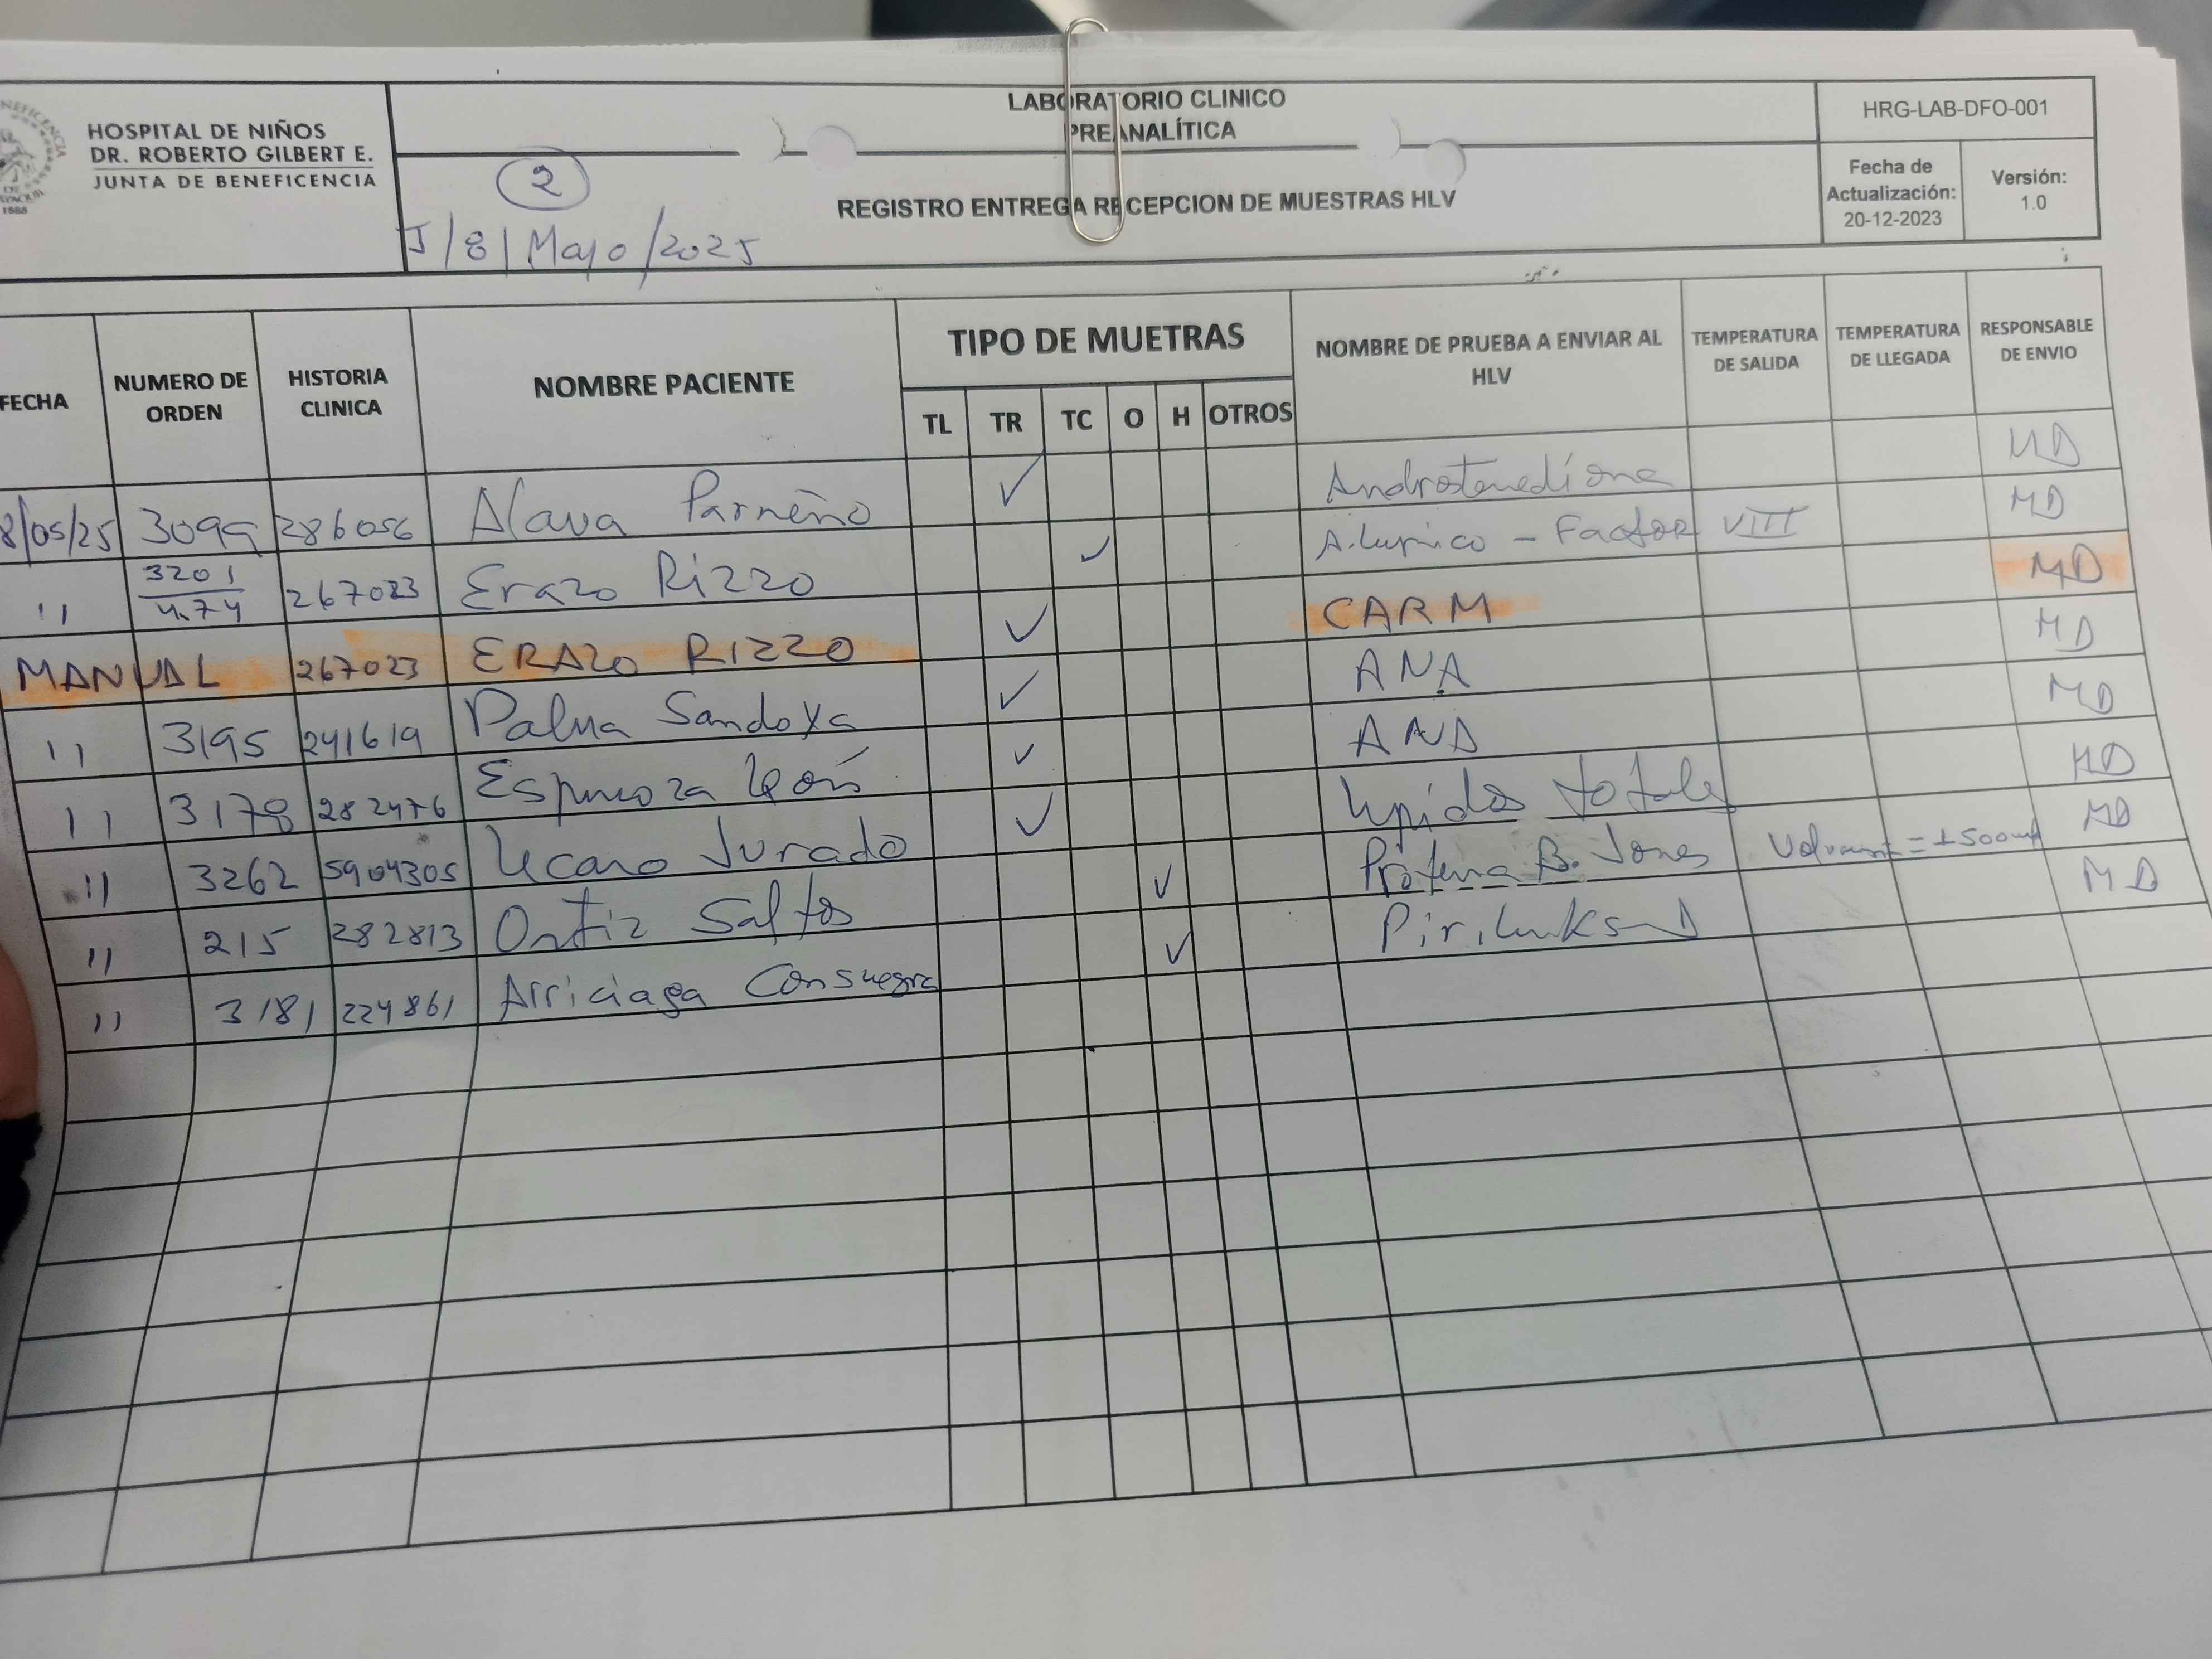 HOSPITAL DE NIÑOS
DR. ROBERTO GILBERT E.
JUNTA DE BENEFICENCIA
1888
LABORATORIO CLINICO
PREANALÍTICA
REGISTRO ENTREGA RECEPCION DE MUESTRAS HLV
HRG-LAB-DFO-001
Fecha de
Actualización:
20-12-2023
Versión:
1.0
2
J/8/Mayo/2025
FECHA NUMERO DE ORDEN HISTORIA CLINICA NOMBRE PACIENTE TIPO DE MUETRAS NOMBRE DE PRUEBA A ENVIAR AL HLV TEMPERATURA DE SALIDA TEMPERATURA DE LLEGADA RESPONSABLE DE ENVIO
TL TR TC O H OTROS
8/05/25 3099 286056 Alava Parreño ✓ Androstenediona MD
11 3201 / 4.74 267023 Erazo Rizzo ✓ A. Lupico - Factor VIII MD
MANUAL 267023 ERAZO RIZZO ✓ CARM MD
11 3195 241619 Palma Sandoya ✓ ANA MD
11 3178 282476 Espinoza León ✓ ANA MD
11 3262 5904305 Licano Jurado ✓ Lipidos totales MD
11 215 282813 Ortiz Saltos ✓ Proteina B. Jones Volumen = ±500ml MD
11 3181 224861 Arriciaga Consuegra ✓ MD